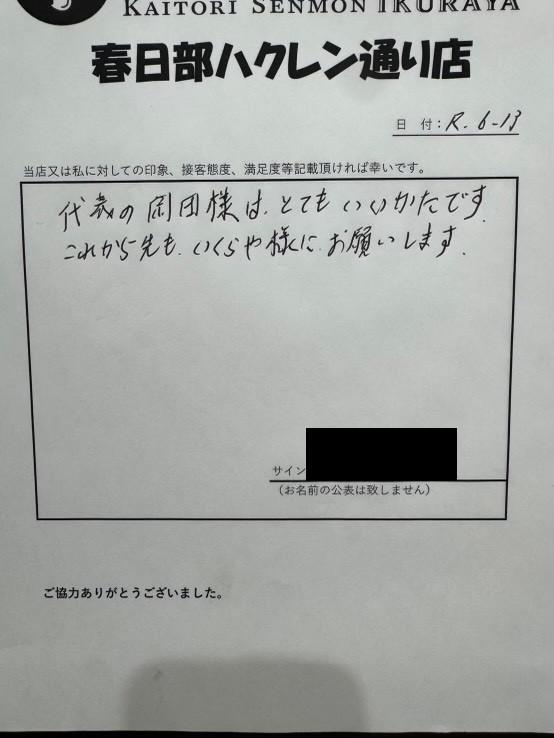 KAITORI SENMON IKURAYA
春日部ハクレン通り店
日 付：R.6-13
当店又は私に対しての印象、接客態度、満足度等記載頂ければ幸いです。
代表の岡田様は、とてもいいかたです。
これから先も、いくらや様に、お願いします。
サイン
（お名前の公表は致しません）
ご協力ありがとうございました。